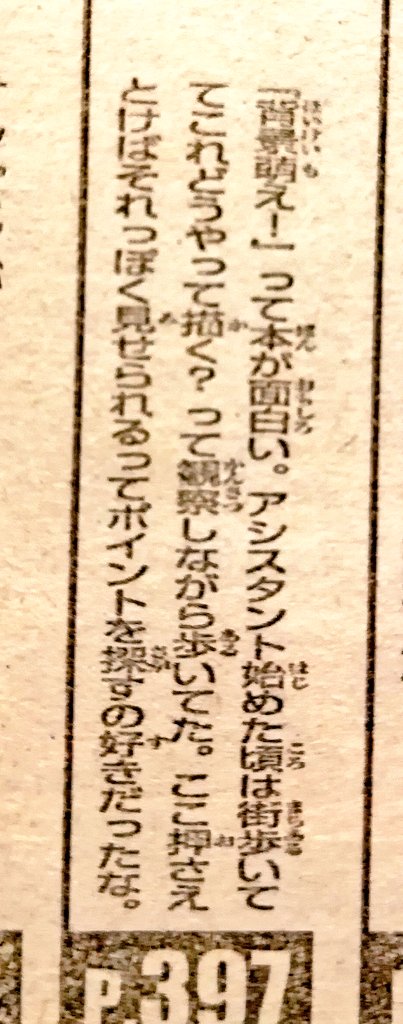 「背景萌えー」って本が面白い。アシスタント始めた頃は街歩いて
てこれどうやって描く？って観察しながら歩いてた。ここ押さえ
とけばそれっぽく見せられるってポイントを探すの好きだったな。
P.397